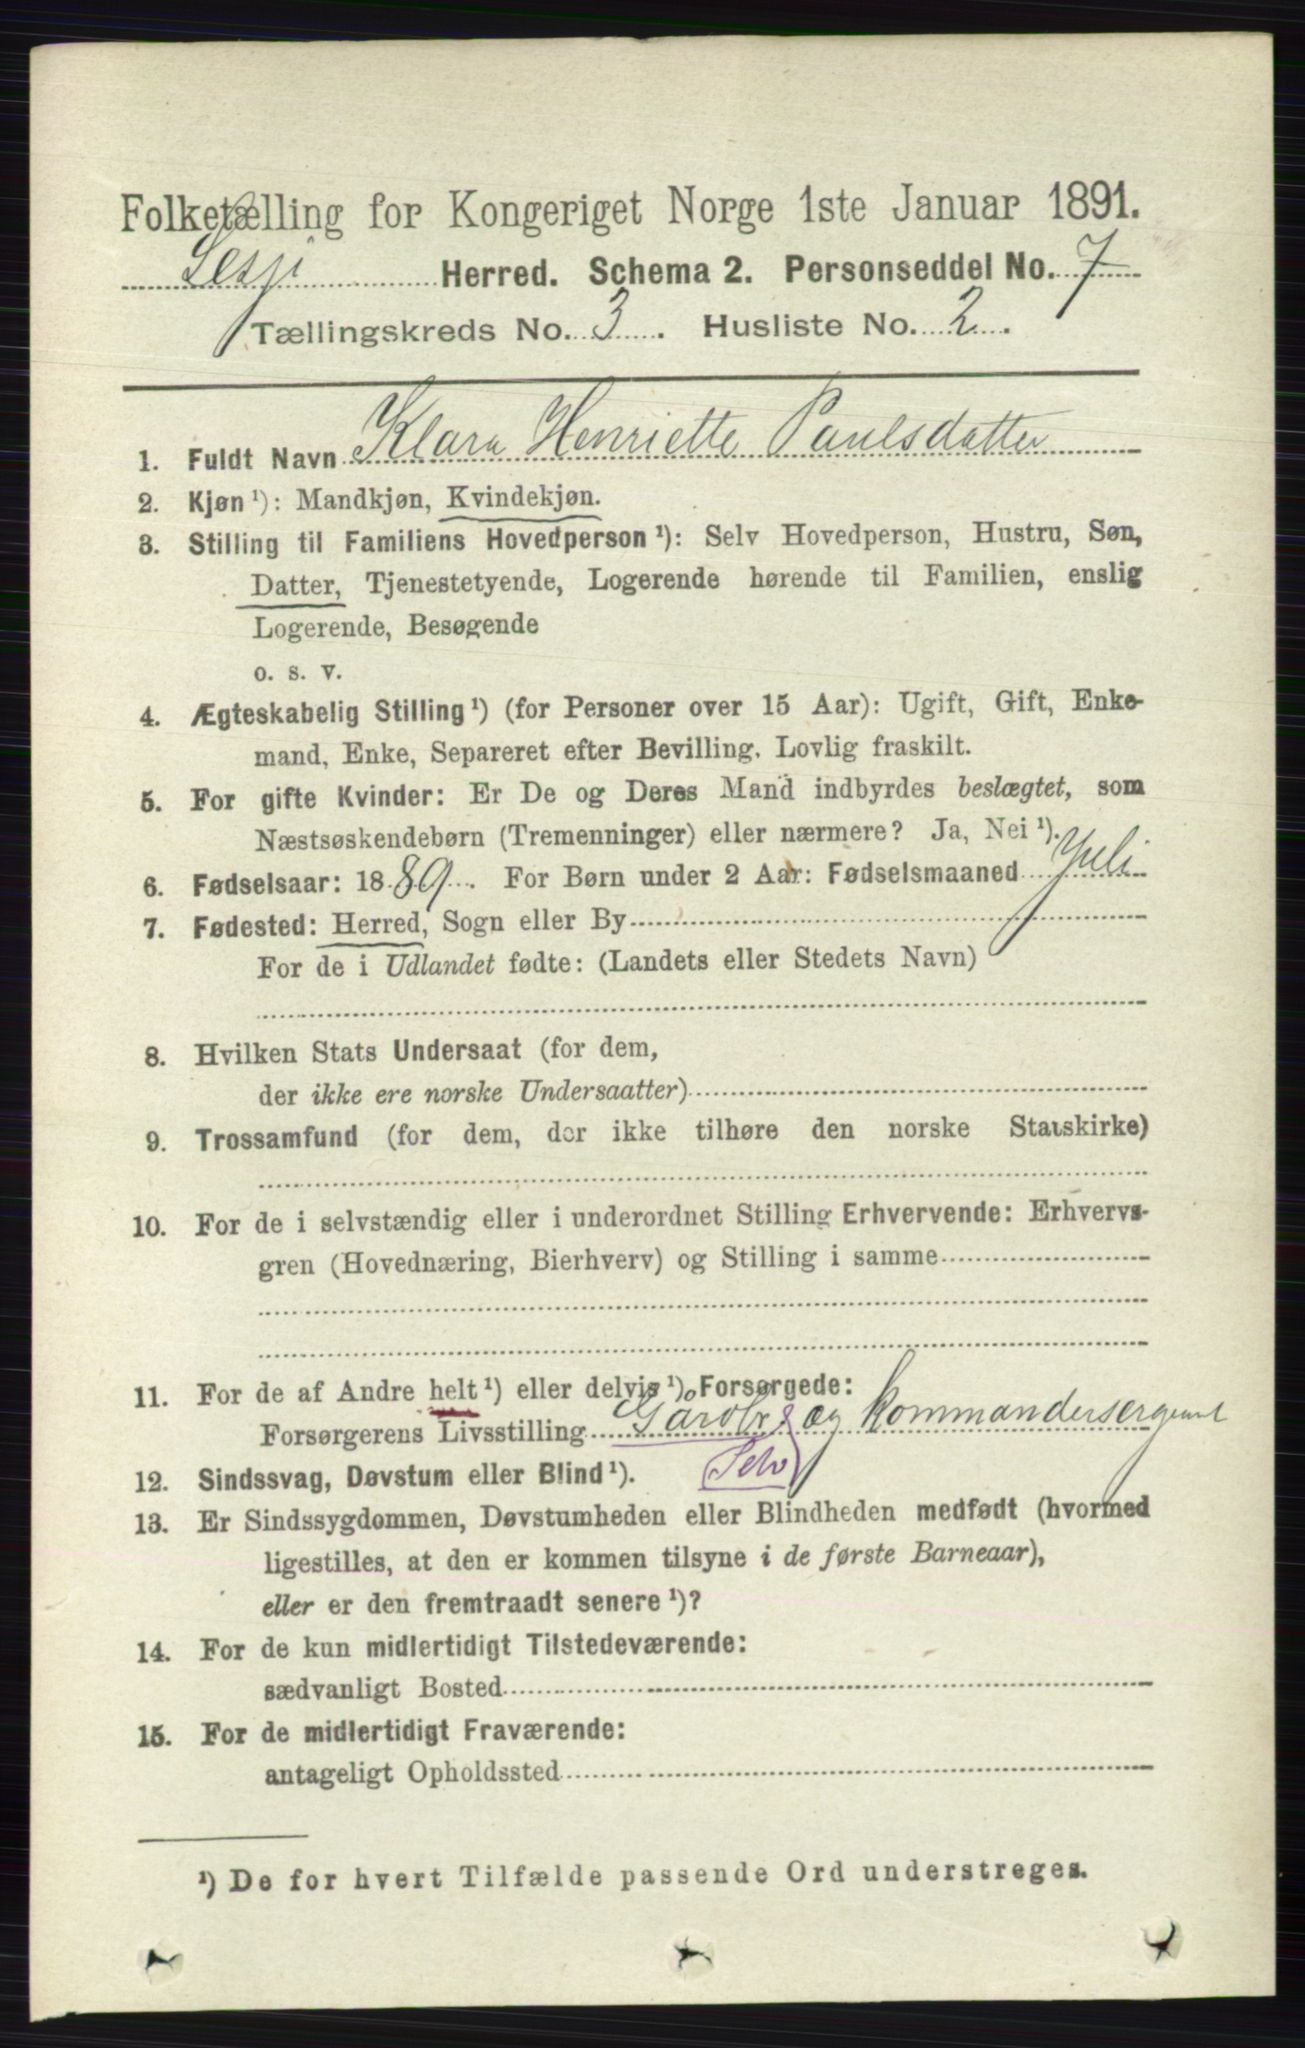 Folketælling for Kongeriget Norge 1ste Januar 1891.
Lesje Herred. Schema 2. Personseddel No. 7
Tællingskreds No. 3. Husliste No. 2.
1. Fuldt Navn Klara Henriette Paulsdatter
2. Kjøn ¹): Mandkjøn, Kvindekjøn.
3. Stilling til Familiens Hovedperson ¹): Selv Hovedperson, Hustru, Søn,
Datter, Tjenestetyende, Logerende hørende til Familien, enslig
Logerende, Besøgende
o. s. v.
4. Ægteskabelig Stilling ¹) (for Personer over 15 Aar): Ugift, Gift, Enke-
mand, Enke, Separeret efter Bevilling. Lovlig fraskilt.
5. For gifte Kvinder: Er De og Deres Mand indbyrdes beslægtet, som
Næstsøskendebørn (Tremenninger) eller nærmere? Ja, Nei ¹).
6. Fødselsaar: 1889. For Børn under 2 Aar: Fødselsmaaned Juli
7. Fødested: Herred, Sogn eller By
For de i Udlandet fødte: (Landets eller Stedets Navn)
8. Hvilken Stats Undersaat (for dem,
der ikke ere norske Undersaatter)
9. Trossamfund (for dem, der ikke tilhøre den norske Statskirke)
10. For de i selvstændig eller i underordnet Stilling Erhvervende: Erhvervs-
gren (Hovednæring, Bierhverv) og Stilling i samme
11. For de af Andre helt ¹) eller delvis ¹) Forsørgede:
Forsørgerens Livsstilling Gårdbr. og Kommandersergeant
12. Sindssvag, Døvstum eller Blind ¹). Selv
13. Er Sindssygdommen, Døvstumheden eller Blindheden medfødt (hvormed
ligestilles, at den er kommen tilsyne i de første Barneaar),
eller er den fremtraadt senere ¹)?
14. For de kun midlertidigt Tilstedeværende:
sædvanligt Bosted
15. For de midlertidigt Fraværende:
antageligt Opholdssted
¹) De for hvert Tilfælde passende Ord understreges.